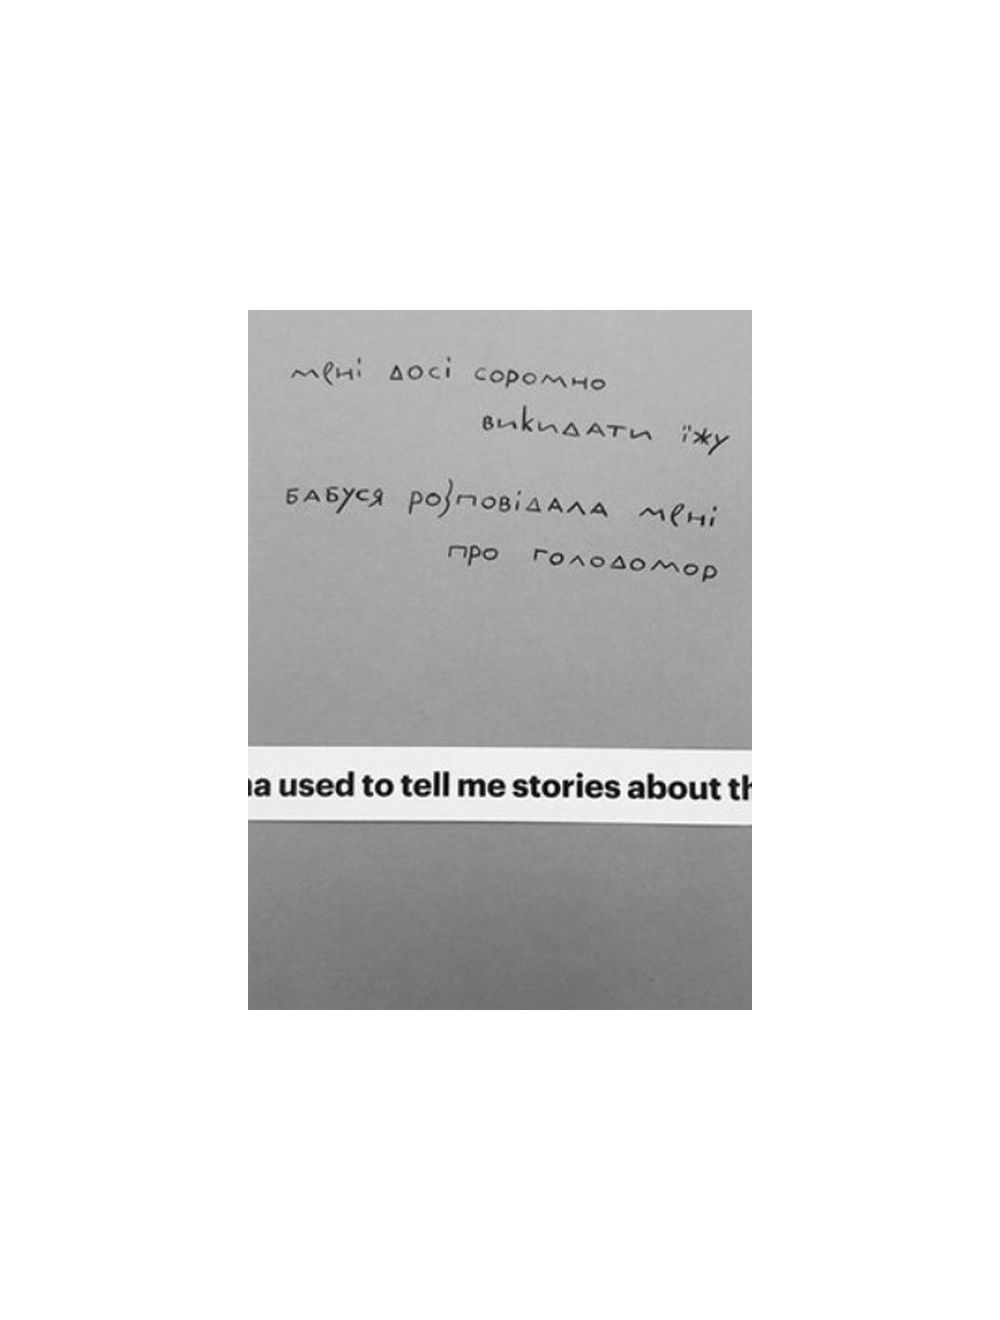 мені досі соромно
викидати їжу
бабуся розповідала мені
про голодомор
used to tell me stories about